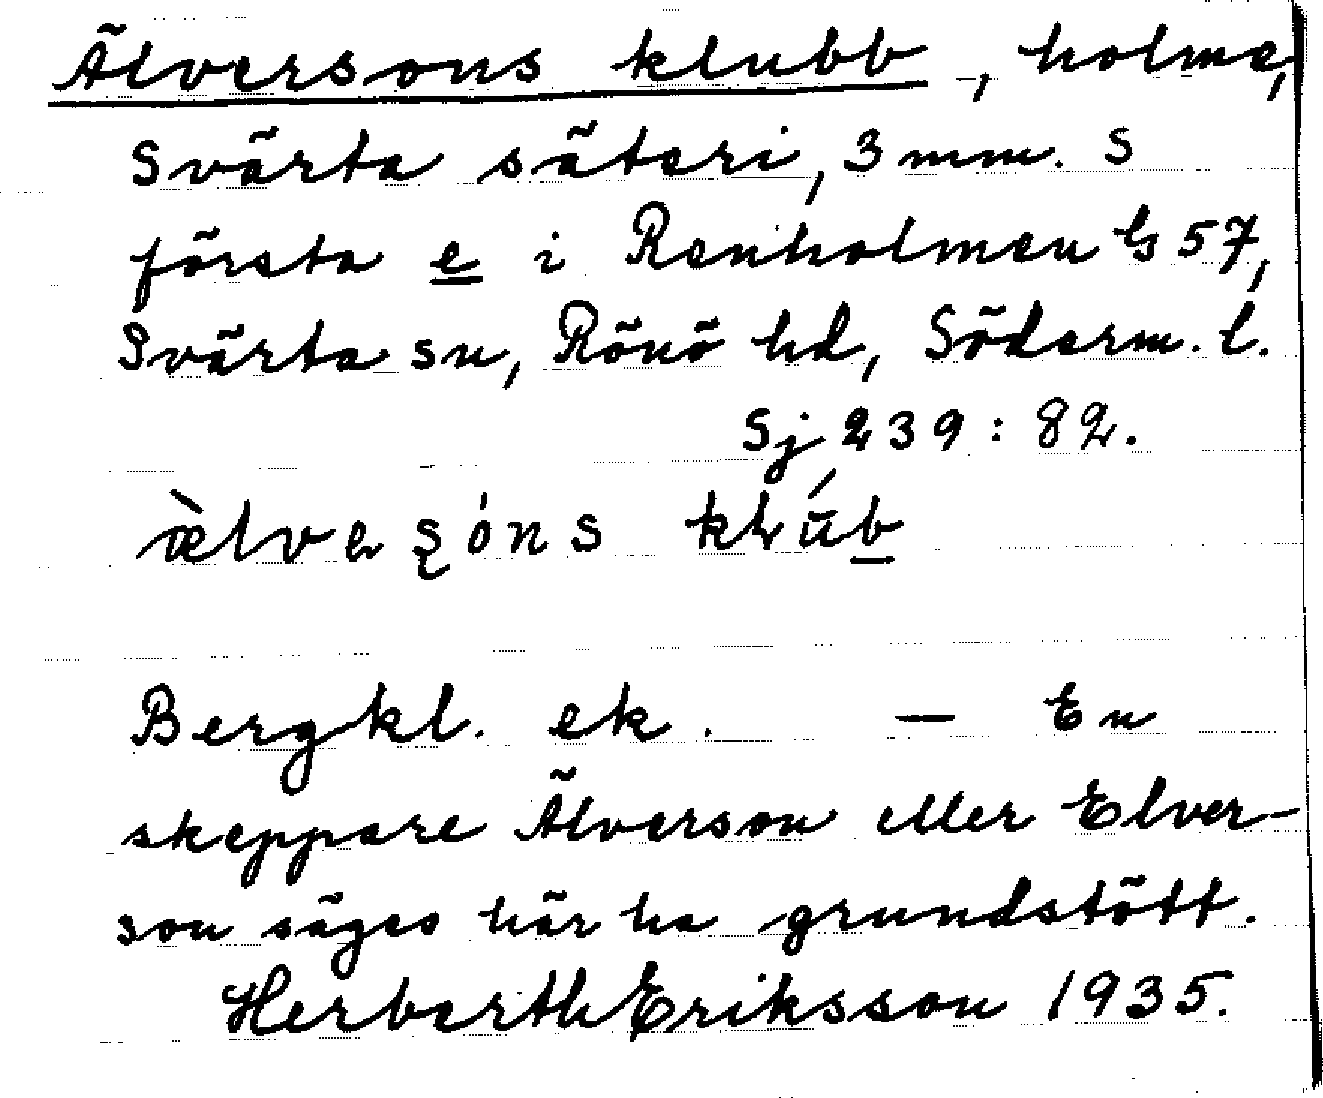 Älversons klubb, holme,
Svärta säteri, 3 mm. S
första e i Renholmen G57,
Svärta sn, Rönö hd, Söderm. l.
Sj 239: 82.
Bergkl. ek. — En
skeppare Älverson eller Elver-
son säges här ha grundstött.
Herberth Eriksson 1935.